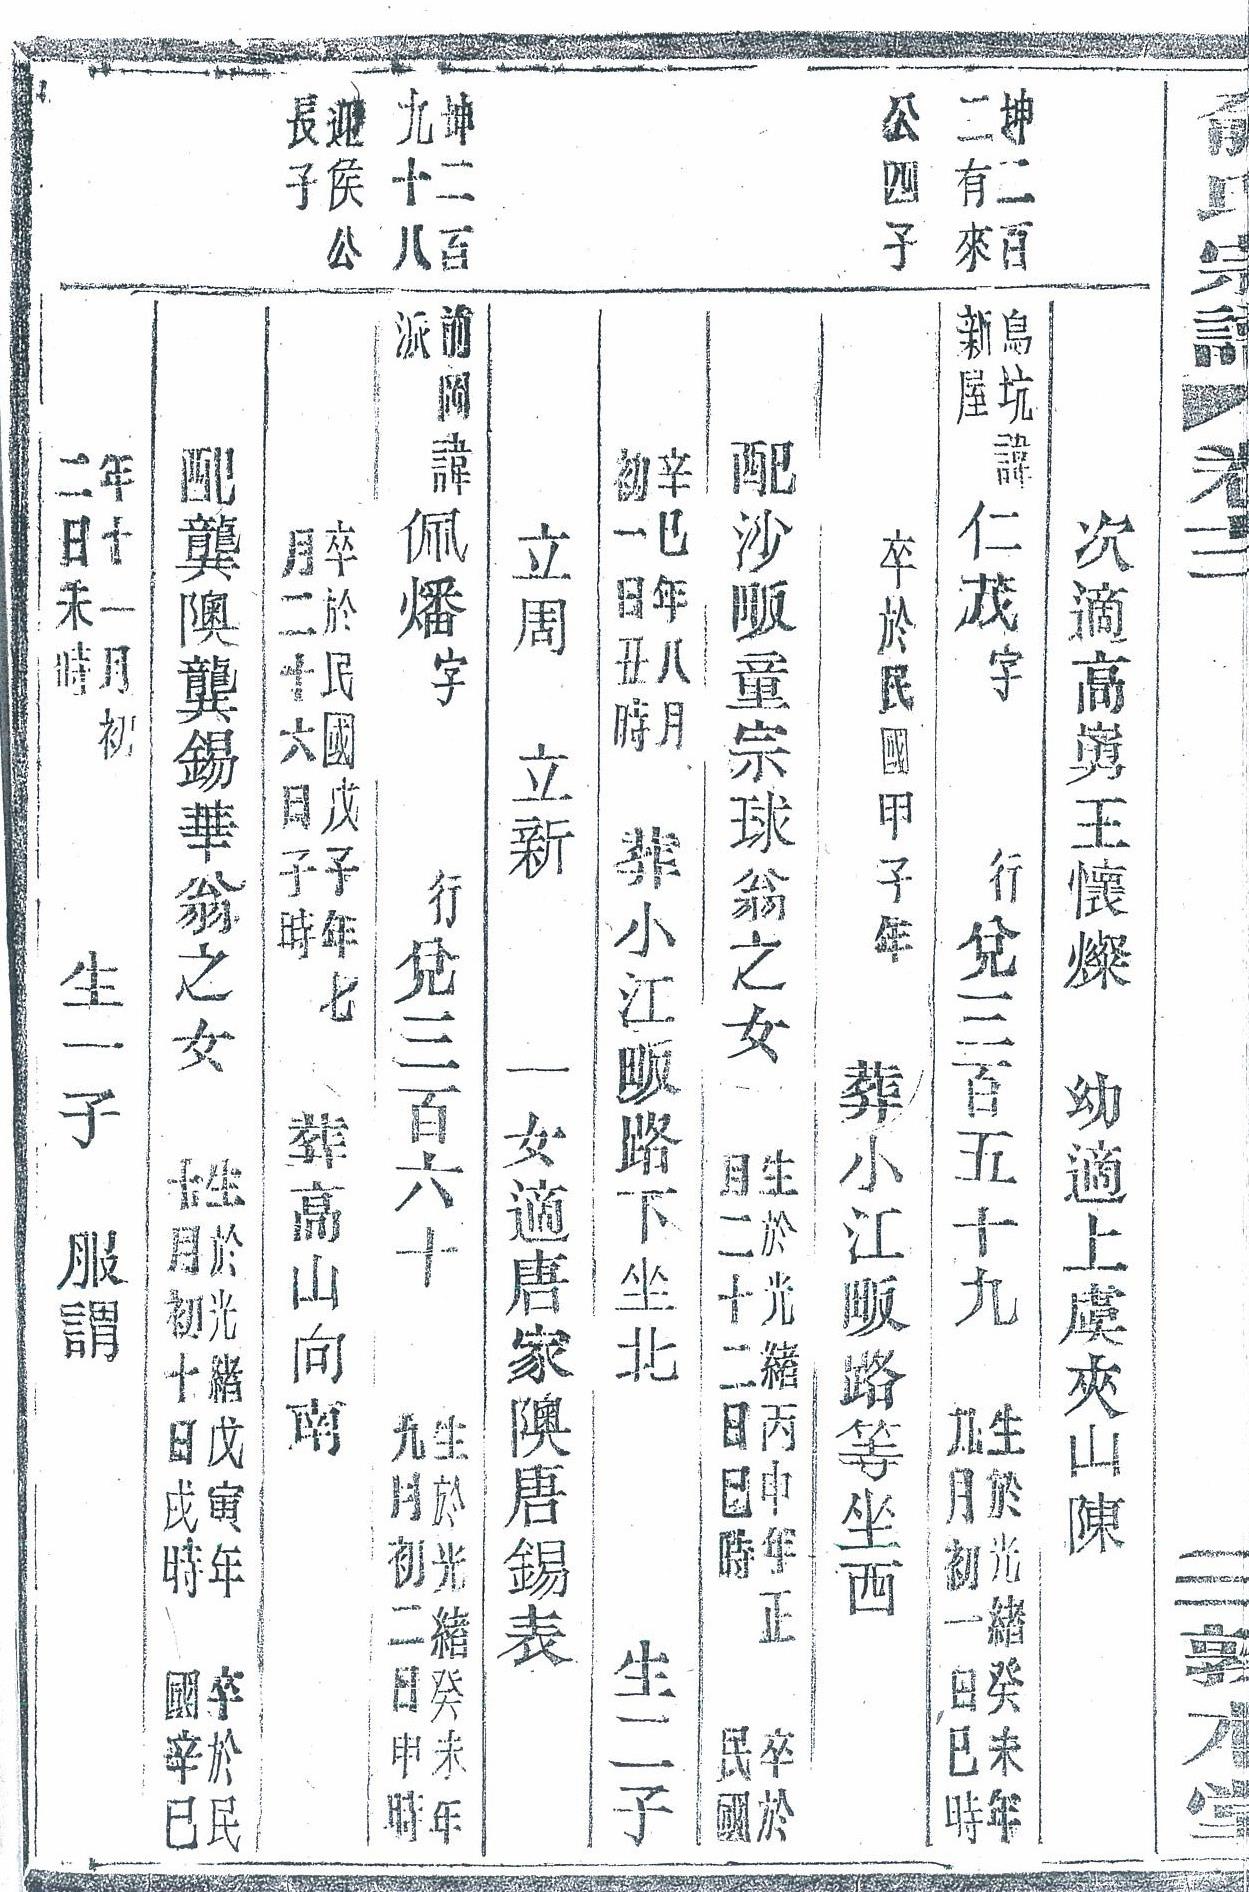 俞氏宗譜
卷三
三
敦本堂
次適高嶴王懷燦　幼適上虞夾山陳
坤二百
二有來
公四子
烏坑諱
新屋
仁茂字　行兌三百五十九
生於光緒癸未年
九月初一日巳時
卒於民國甲子年　葬小江畈路等坐西
配沙畈童宗球翁之女
生於光緒丙申年正
月二十二日巳時
卒於
民國
辛巳年八月
初一日丑時
葬小江畈路下坐北　生二子
立周　立新　一女適唐家隩唐錫表
坤二百
九十八
迎侯公
長子
前岡諱
派
佩燔字　行兌三百六十
生於光緒癸未年
九月初二日申時
卒於民國戊子年七
月二十六日子時
葬高山向南
配龔隩龔錫華翁之女
生於光緒戊寅年
十月初十日戌時
卒於民
國辛巳
年十一月初
二日未時
生一子　服謂